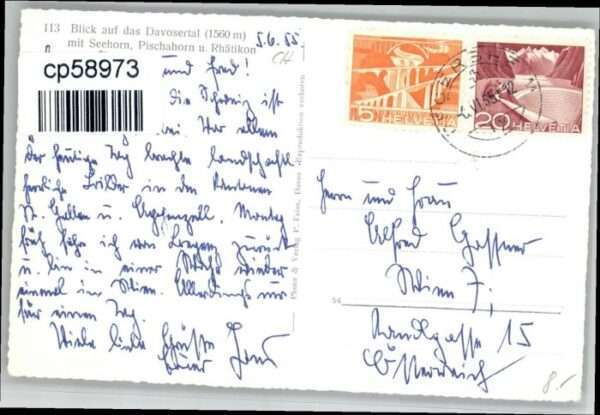 113 Blick auf das Davosertal (1560 m)
mit Seehorn, Pischahorn u. Rhätikon
5.6.55
CH
cp58973
und Fred!
Die Schweiz ist
Vor allem
Der heutige Tag brachte landschaftl.
herrliche Bilder in den Kantonen
St. Gallen u. Appenzell. Montag
früh fahre ich von zurück
u. bin in einer Woche wieder
einmal in Wien. Allerdings nur
für einen Tag.
Viele liebe Grüsse
Euer
Photo & Verlag Davos Reproduktion verboten
5 HELVETIA
20 HELVETIA
Herrn und Frau
Alfred Gassner
Wien 7,
Kandlgasse 15
Österreich
54
8.-